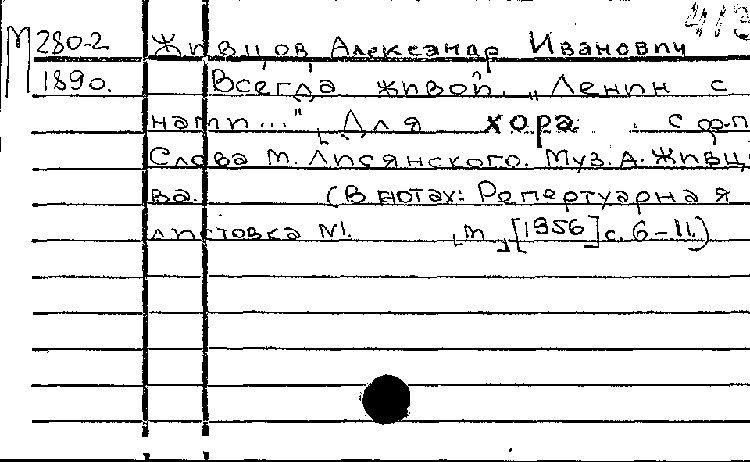 413
М280-2 Живцов Александр Иванович
1890. Всегда живой. „Ленин с
нами..." Для хора с ф-п
Слова М. Лисянского. Муз. А. Живцо-
ва. (В нотах: Репертуарная
листовка №1. М, [1956] с. 6-11.)